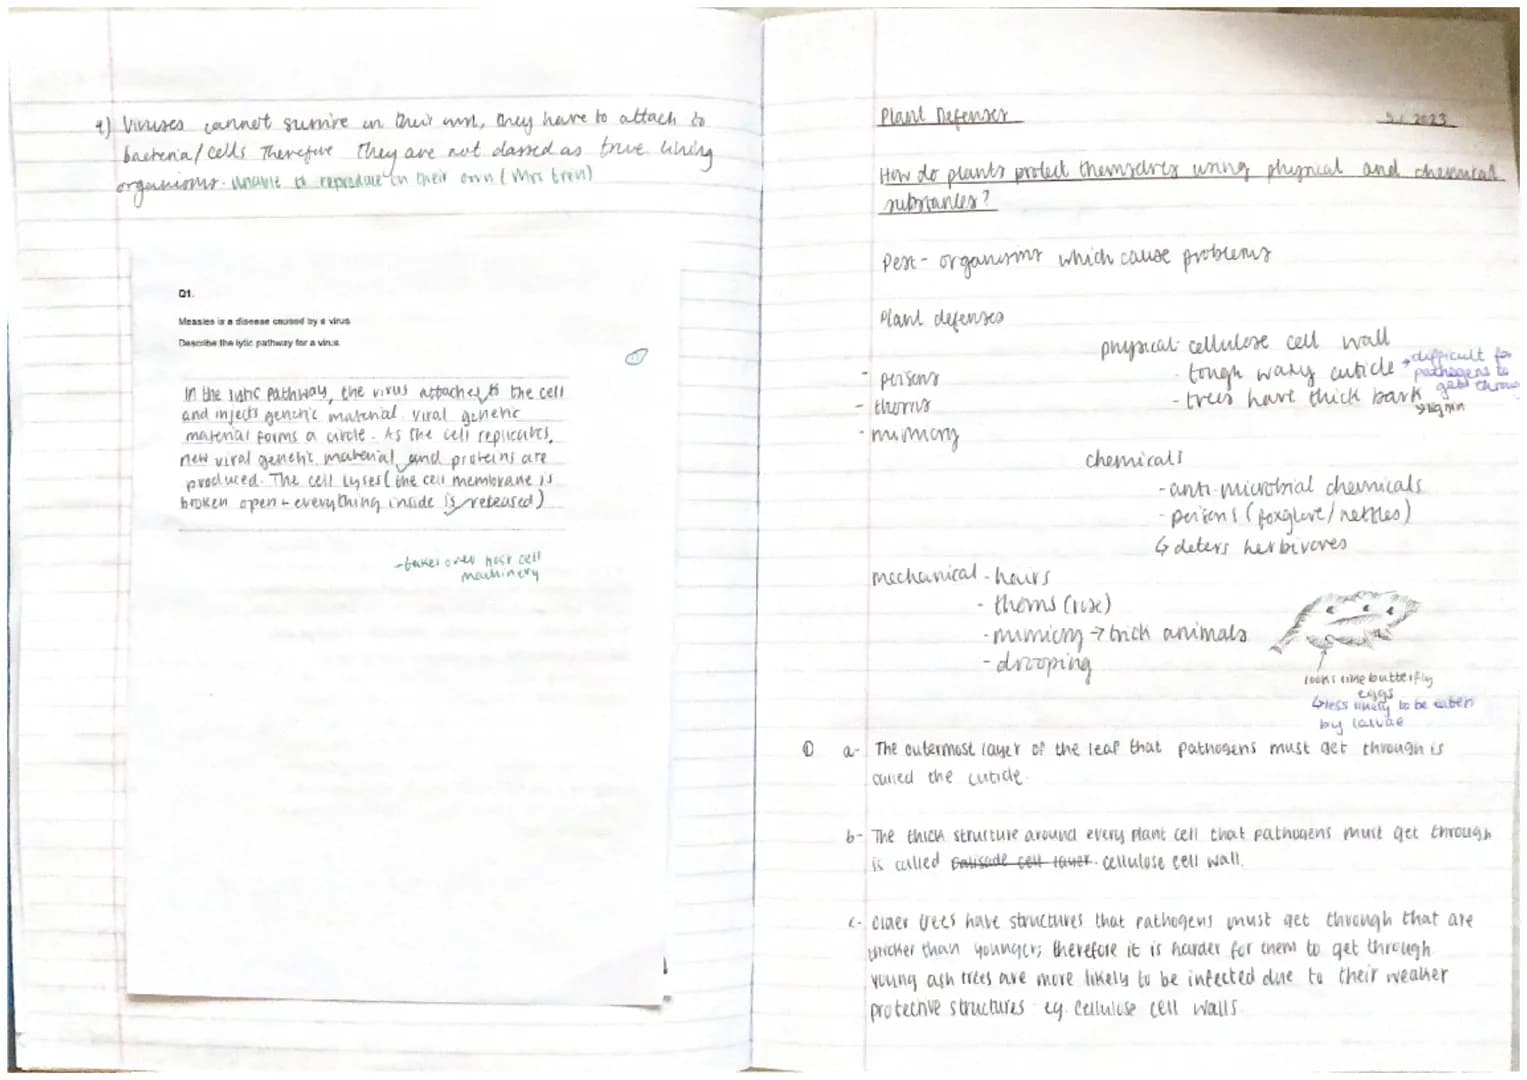 4) Viruses cannot survive on their own, they have to attach to
bacteria/cells Therefore they are not classed as true living
organisms. unable to reproduce on their own (Mrs Gren)
Q1.
Measles is a disease caused by a virus
Describe the lytic pathway for a virus.
In the lytic pathway, the virus attaches to the cell
and injects genetic material. Viral genetic
material forms a circle. As the cell replicates,
new viral genetic material and proteins are
produced. The cell lyses (the cell membrane is
broken open + everything inside is released)
-takes over host cell
machinery
Plant Defenses
2023
How do plants protect themselves using physical and chemical
substances?
Pest - organisms which cause problems
Plant defenses
- poisons
- thorns
- mimicry
physical- cellulose cell wall
- tough waxy cuticle → difficult for
pathogens to
get through
- trees have thick bark
↳ lignin
chemicals
- anti-microbial chemicals
- poisons (foxglove/nettles)
↳ deters herbivores
mechanical - hairs
- thorns (rose)
- mimicry → trick animals
- drooping
looks like butterfly
eggs
↳ less likely to be eaten
by larvae
① a- The outermost layer of the leaf that pathogens must get through is
called the cuticle.
b- The thick structure around every plant cell that pathogens must get through
is called Palisade cell layer. cellulose cell wall.
c- older trees have structures that pathogens must get through that are
thicker than younger; therefore it is harder for them to get through
young ash trees are more likely to be infected due to their weaker
protective structures eg. cellulose cell walls